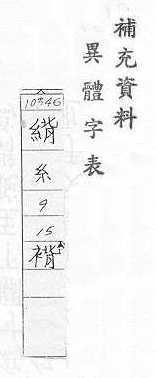 補充資料
異體字表
10346
糸
9
15
褙